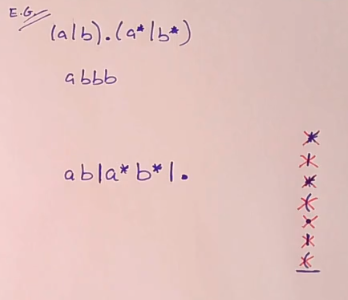 E.G.
(a|b).(a*|b*)
abbb
ab|a*b*|.
*
|
*
(
.
|
(